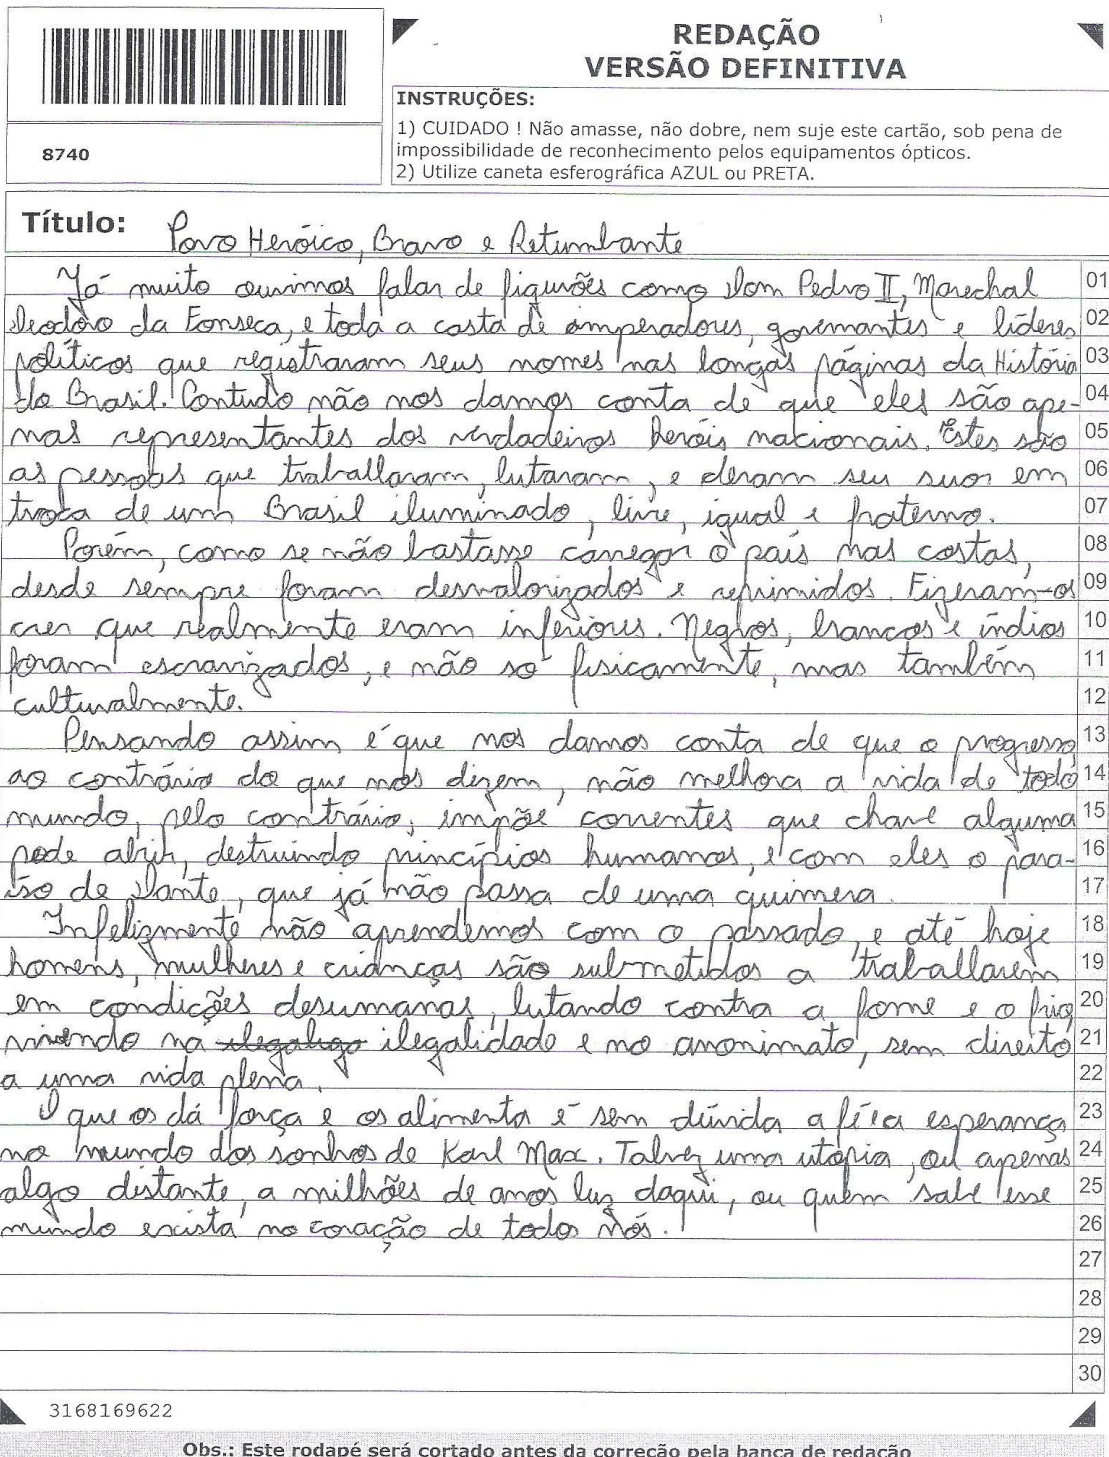 REDAÇÃO
VERSÃO DEFINITIVA
INSTRUÇÕES:
1) CUIDADO ! Não amasse, não dobre, nem suje este cartão, sob pena de
impossibilidade de reconhecimento pelos equipamentos ópticos.
2) Utilize caneta esferográfica AZUL ou PRETA.
8740
Título: Povo Heróico, Bravo e Retumbante
Já muito ouvimos falar de figurões como Dom Pedro II, Marechal 01
Deodoro da Fonseca, e toda a casta de imperadores, governantes e líderes 02
políticos que registraram seus nomes nas longas páginas da História 03
do Brasil. Contudo não nos damos conta de que eles são ape- 04
nas representantes dos verdadeiros heróis nacionais. Estes são 05
as pessoas que traballaram, lutaram, e deram seu suor em 06
troca de um Brasil iluminado, livre, igual e fraterno. 07
Porém, como se não bastasse carregar o país nas costas, 08
desde sempre foram desvalorizados e reprimidos. Fizeram-os 09
crer que realmente eram inferiores. Negros, brancos e índios 10
foram escravizados, e não só fisicamente, mas também 11
culturalmente. 12
Pensando assim é que nos damos conta de que o progresso 13
ao contrário do que nos dizem, não melhora a vida de todo 14
mundo, pelo contrário, impõe correntes que chave alguma 15
pode abrir, destruindo princípios humanos, e com eles o para- 16
íso de Dante, que já não passa de uma quimera. 17
Infelizmente não aprendemos com o passado, e até hoje 18
homens, mulheres e crianças são submetidos a traballarem 19
em condições desumanas, lutando contra a fome e o frio, 20
vivendo na ilegalidade e no anonimato, sem direito 21
a uma vida plena. 22
O que os dá força e os alimenta é sem dúvida a fé e a esperança 23
no mundo dos sonhos de Karl Max. Talvez uma utopia, ou apenas 24
algo distante, a milhões de anos luz daqui, ou quem sabe esse 25
mundo exista no coração de todos nós. 26
27
28
29
30
3168169622
Obs.: Este rodapé será cortado antes da correção pela banca de redação